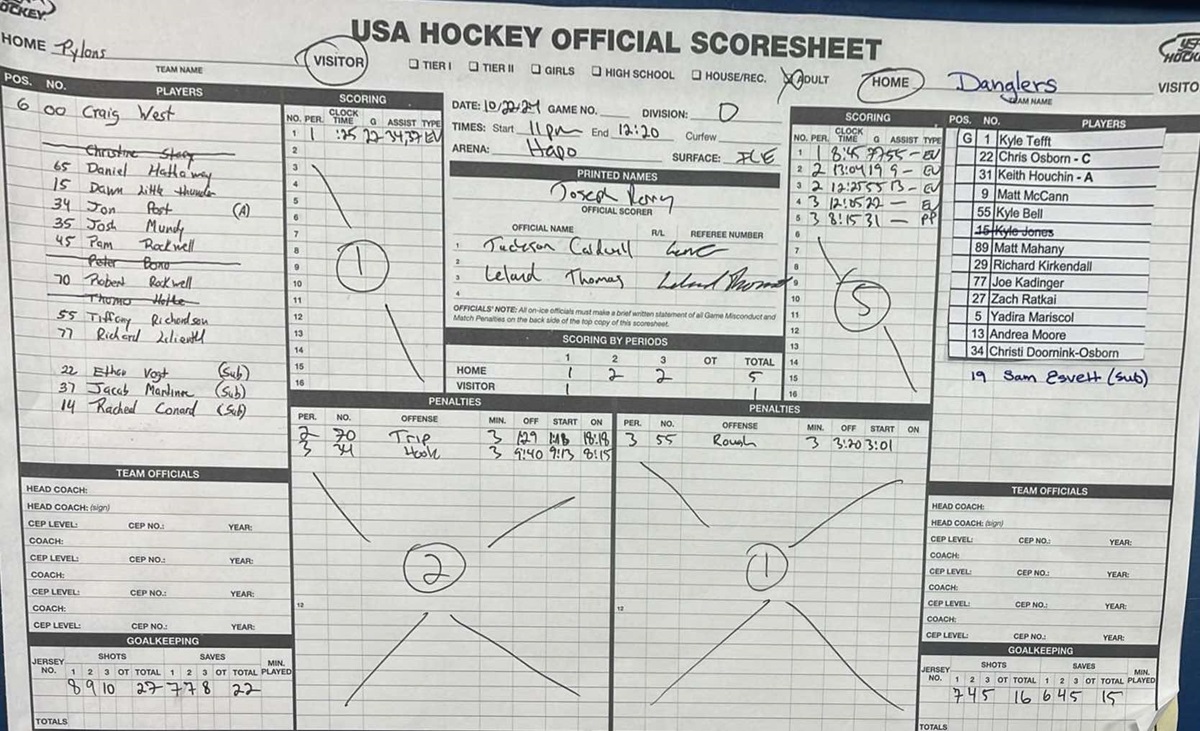 HOCKEY
USA HOCKEY OFFICIAL SCORESHEET
HOME Pylons VISITOR
TEAM NAME
☐ TIER I ☐ TIER II ☐ GIRLS ☐ HIGH SCHOOL ☐ HOUSE/REC. ☒ ADULT
HOME Danglers VISITO
TEAM NAME
POS. NO. PLAYERS
G 00 Craig West
Christine
65 Daniel Hathaway
15 Dawn Little thunder
34 Jon Post (A)
35 Josh Mundy
45 Pam Rockwell
Peter Bono
70 Robert Rockwell
Thomo
55 Tiffany Richardson
77 Richard
22 Ethan Vogt (Sub)
37 Jacob (Sub)
14 Rachel Conard (Sub)
SCORING
NO. PER. CLOCK TIME G ASSIST TYPE
1 1 :25 22 34,37 EV
2
3
4
5
6
7
8
9
10
11
12
13
14
15
16
1
DATE: 10/22/24 GAME NO. DIVISION: D
TIMES: Start 11pm End 12:20 Curfew
ARENA: Hapo SURFACE: ICE
PRINTED NAMES
Joseph Perry
OFFICIAL SCORER
OFFICIAL NAME R/L REFEREE NUMBER
1 Jackson Caldwell
2
3 Leland Thomas Leland Thomas
4
OFFICIALS' NOTE: All on-ice officials must make a brief written statement of all Game Misconduct and
Match Penalties on the back side of the top copy of this scoresheet.
SCORING BY PERIODS
1 2 3 OT TOTAL
HOME 1 2 2 5
VISITOR 1 1
SCORING
NO. PER. CLOCK TIME G ASSIST TYPE
1 1 8:45 77 55 - EV
2 2 13:04 19 9 - EV
3 2 12:25 55 13 - EV
4 3 12:05 22 — EV
5 3 8:15 31 — PP
6
7
8
9
10
11
12
13
14
15
16
5
POS. NO. PLAYERS
G 1 Kyle Tefft
22 Chris Osborn - C
31 Keith Houchin - A
9 Matt McCann
55 Kyle Bell
15 Kyle Jones
89 Matt Mahany
29 Richard Kirkendall
77 Joe Kadinger
27 Zach Ratkai
5 Yadira Mariscol
13 Andrea Moore
34 Christi Doornink-Osborn
19 Sam Esvelt (sub)
PENALTIES
PER. NO. OFFENSE MIN. OFF START ON
2 70 Trip 3 1:29 18:18
3 34 Hook 3 9:40 9:13 8:15
2
12
PENALTIES
PER. NO. OFFENSE MIN. OFF START ON
3 55 Rough 3 3:20 3:01
1
12
TEAM OFFICIALS
HEAD COACH:
HEAD COACH: (sign)
CEP LEVEL: CEP NO.: YEAR:
COACH:
CEP LEVEL: CEP NO.: YEAR:
COACH:
CEP LEVEL: CEP NO.: YEAR:
COACH:
CEP LEVEL: CEP NO.: YEAR:
GOALKEEPING
JERSEY NO. SHOTS SAVES MIN. PLAYED
1 2 3 OT TOTAL 1 2 3 OT TOTAL
8 9 10 27 7 7 8 22
TOTALS
TEAM OFFICIALS
HEAD COACH:
HEAD COACH: (sign)
CEP LEVEL: CEP NO.: YEAR:
COACH:
CEP LEVEL: CEP NO.: YEAR:
COACH:
CEP LEVEL: CEP NO.: YEAR:
COACH:
CEP LEVEL: CEP NO.: YEAR:
GOALKEEPING
JERSEY NO. SHOTS SAVES MIN. PLAYED
1 2 3 OT TOTAL 1 2 3 OT TOTAL
7 4 5 16 6 4 5 15
TOTALS